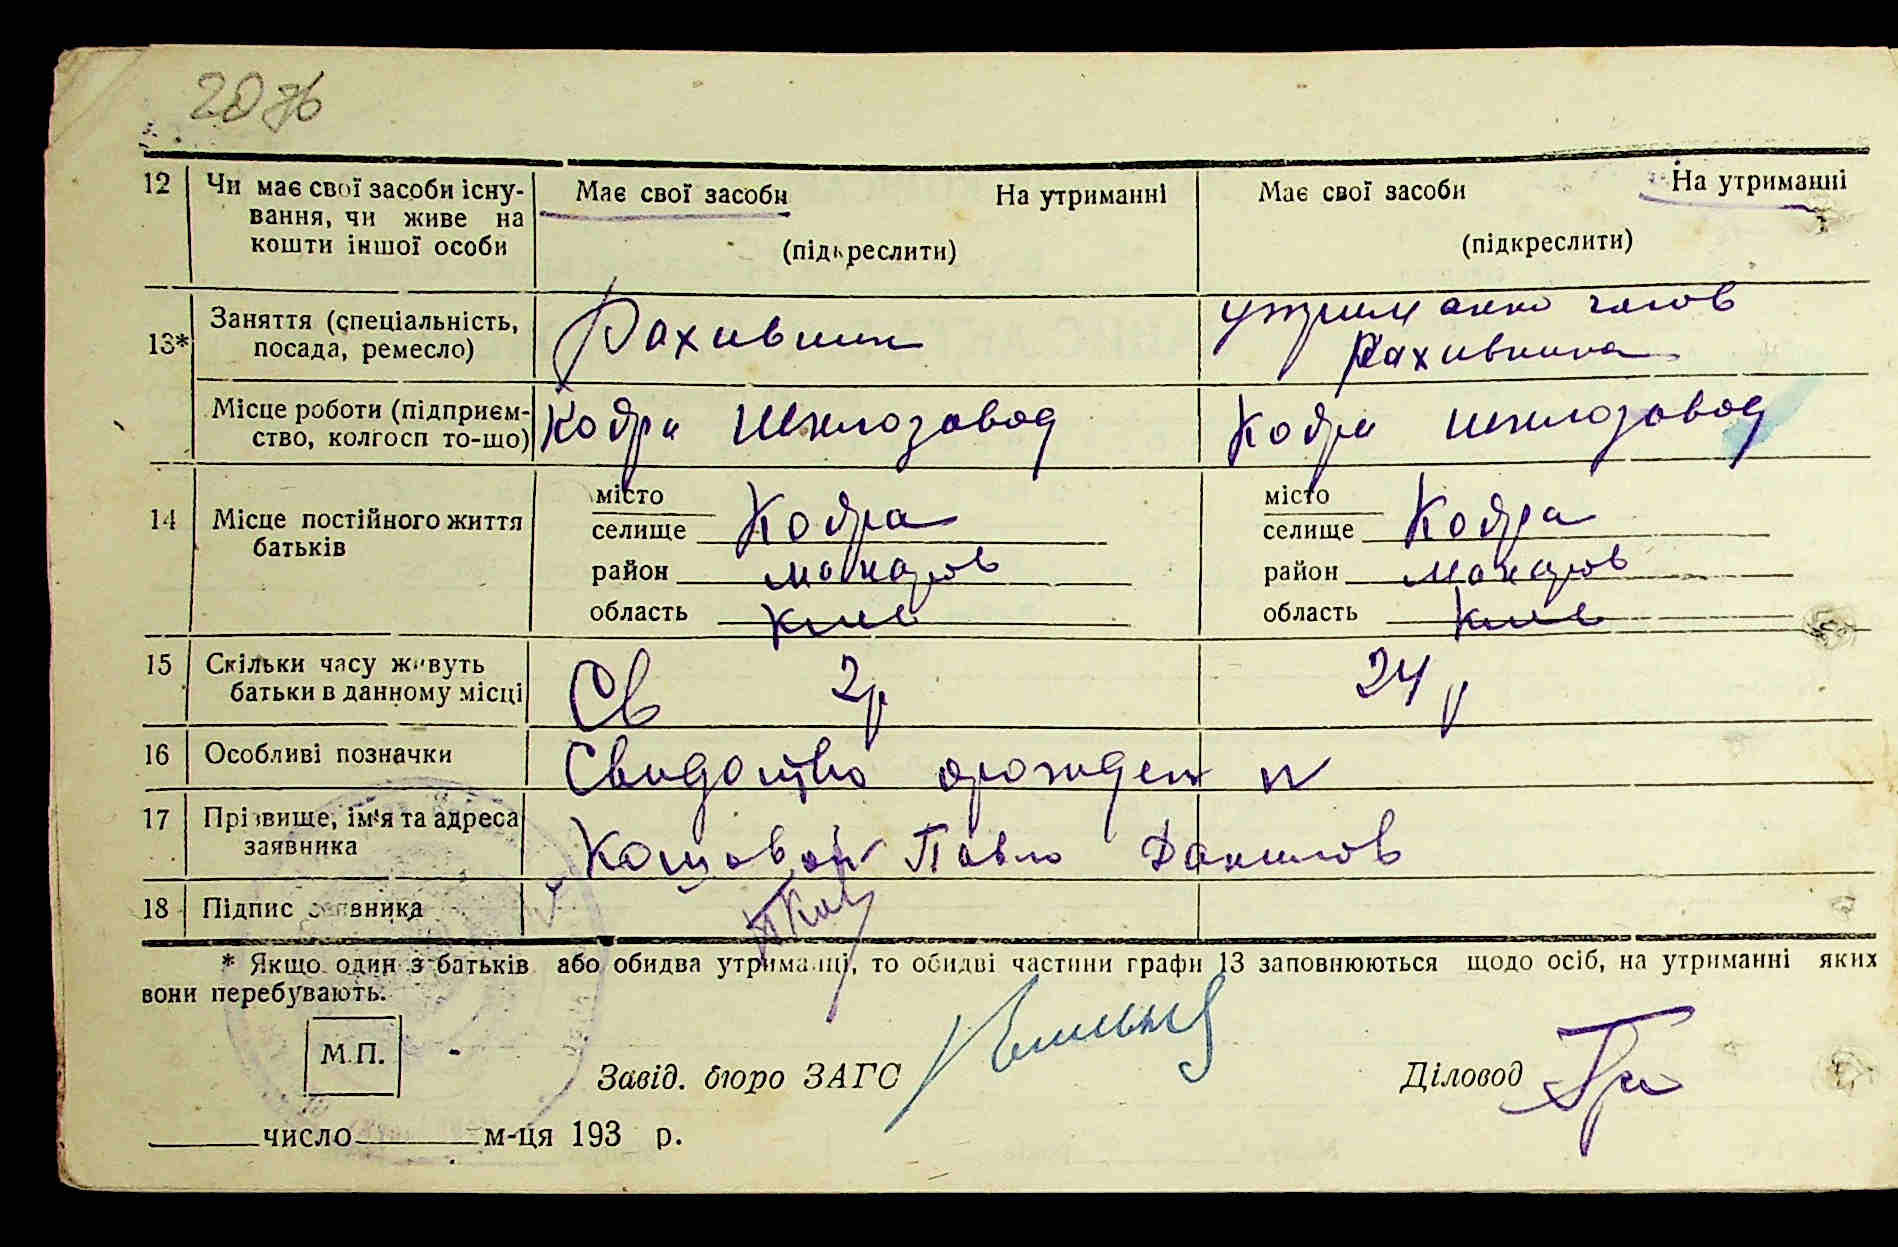 20 зб
12 Чи має свої засоби існування, чи живе на кошти іншої особи
Має свої засоби На утриманні
(підкреслити)
Має свої засоби На утриманні
(підкреслити)
13* Заняття (спеціальність, посада, ремесло)
Рахивник
утриманно чолов
Рахивника
Місце роботи (підприємство, колгосп то-що)
Кодра шклозавод
Кодра шклозавод
14 Місце постійного життя батьків
місто
селище Кодра
район Макаров
область Киев
місто
селище Кодра
район Макаров
область Киев
15 Скільки часу живуть батьки в данному місці
Св 2р
24 р
16 Особливі позначки
Свидоцтво орожден N
17 Прізвище, ім'я та адреса заявника
Кошовой Павло Данилов
18 Підпис заявника
* Якщо один з батьків або обидва утриманці, то обидві частини графи 13 заповнюються щодо осіб, на утриманні яких
вони перебувають.
М.П.
Завід. бюро ЗАГС
Діловод
число м-ця 193 р.